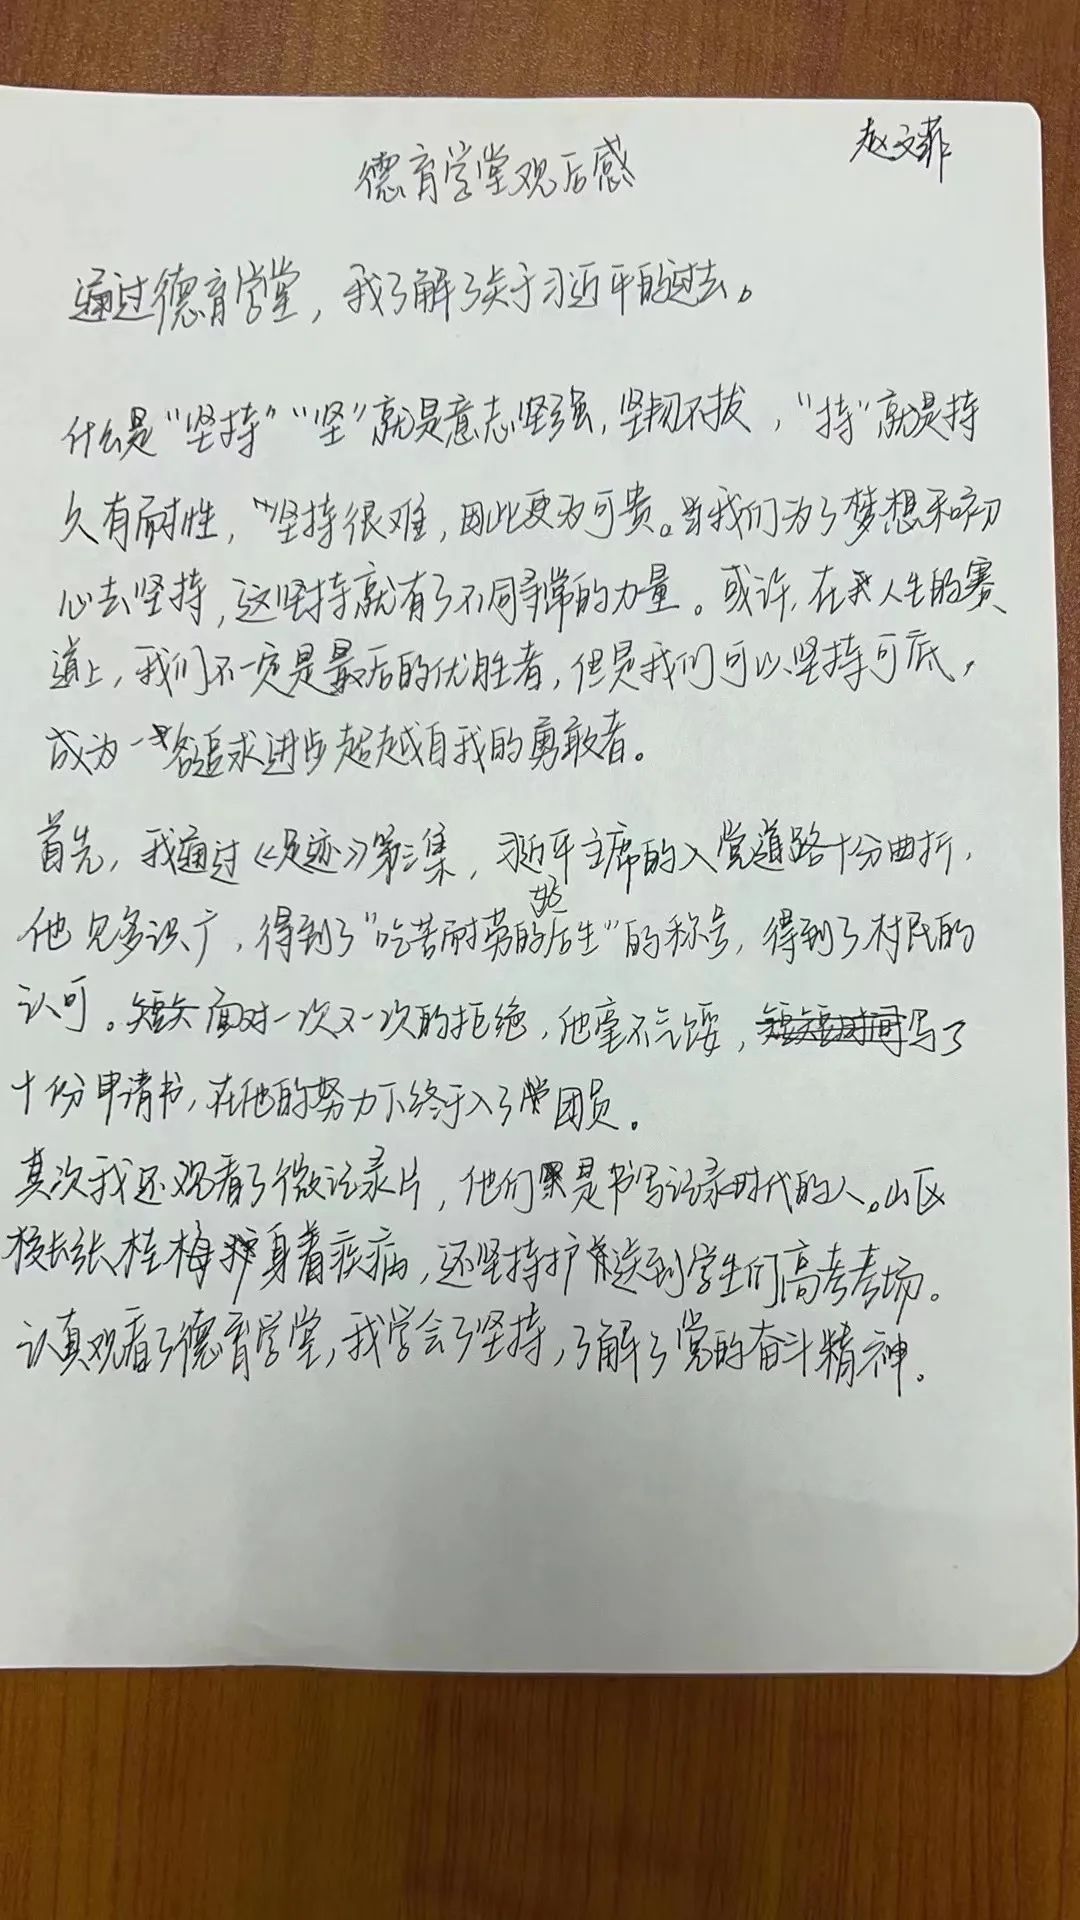 赵文菲
德育学堂观后感
通过德育学堂，我了解了关于习近平的过去。
什么是“坚持”“坚”就是意志坚强，坚韧不拔，“持”就是持
久有耐性，“坚持很难，因此更为可贵。当我们为了梦想和初
心去坚持，这坚持就有了不同寻常的力量。或许，在我人生的赛
道上，我们不一定是最后的优胜者，但是我们可以坚持可底，
成为一名追求进步超越自我的勇敢者。
首先，我通过《足迹》第三集，习近平主席的入党道路十分曲折，
他见多识广，得到了“吃苦耐劳的好后生”的称号，得到了村民的
认可。面对一次又一次的拒绝，他毫不气馁，写了
十份申请书，在他的努力下终于入了团员。
其次我还观看了微记录片，他们是书写记录时代的人。山区
校长张桂梅身着疾病，还坚持护送到学生们高考考场。
认真观看了德育学堂，我学会了坚持，了解了党的奋斗精神。